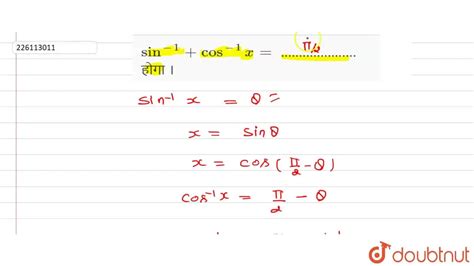 226113011
π/2
sin⁻¹ + cos⁻¹ x = ......................
होगा ।
sin⁻¹ x = θ =
x = sinθ
x = cos (π/2 - θ)
cos⁻¹x = π/2 - θ
doubtnut